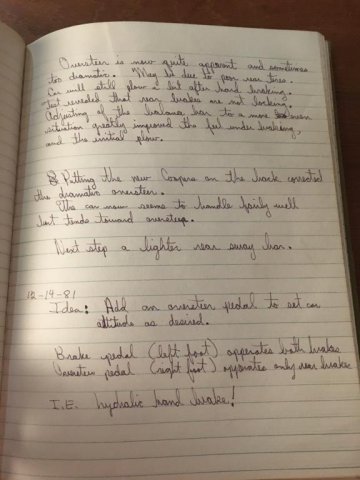 Oversteer is now quite apparent and sometimes
too dramatic. May be due to poor rear tires.
Car will still plow a bit after hard braking.
Test revealed that rear brakes are not locking.
Adjusting of the balance bar to a more even
situation greatly improved the feel under braking,
and the initial plow.
Putting the new Coopers on the back corrected
the dramatic oversteer.
The car now seems to handle fairly well
but tends toward oversteer.
Next step a lighter rear sway bar.
12-14-81
Idea: Add an oversteer pedal to set car
attitude as desired.
Brake pedal (left foot) opperates both brakes
Oversteer pedal (right foot) opperates only rear brakes
I.E. hydralic hand brake!